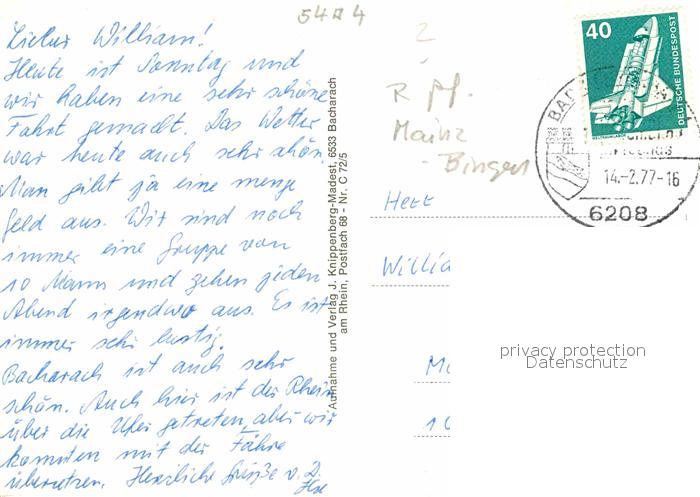 54 4
2
Lieber William!
Heute ist Sonntag und
wir haben eine sehr schöne
Fahrt gemacht. Das Wetter
war heute auch sehr schön.
Man gibt ja eine menge
Geld aus. Wir sind noch
immer eine Gruppe von
10 Mann und ziehen jeden
Abend irgendwo aus. Es ist
immer sehr lustig.
Bacharach ist auch sehr
schön. Auch hier ist der Rhein
über die Ufer getreten, aber wir
konnten mit der Fähre
übersetzen. Herzliche Grüße v. D.
Aufnahme und Verlag J. Knippenberg-Madest, 6533 Bacharach
am Rhein, Postfach 68 - Nr. C 72/5
R. Pf.
Mainz
- Bingen
40
DEUTSCHE BUNDESPOST
BAD
14.-2.77-16
6208
Herr
Willia
privacy protection
Datenschutz